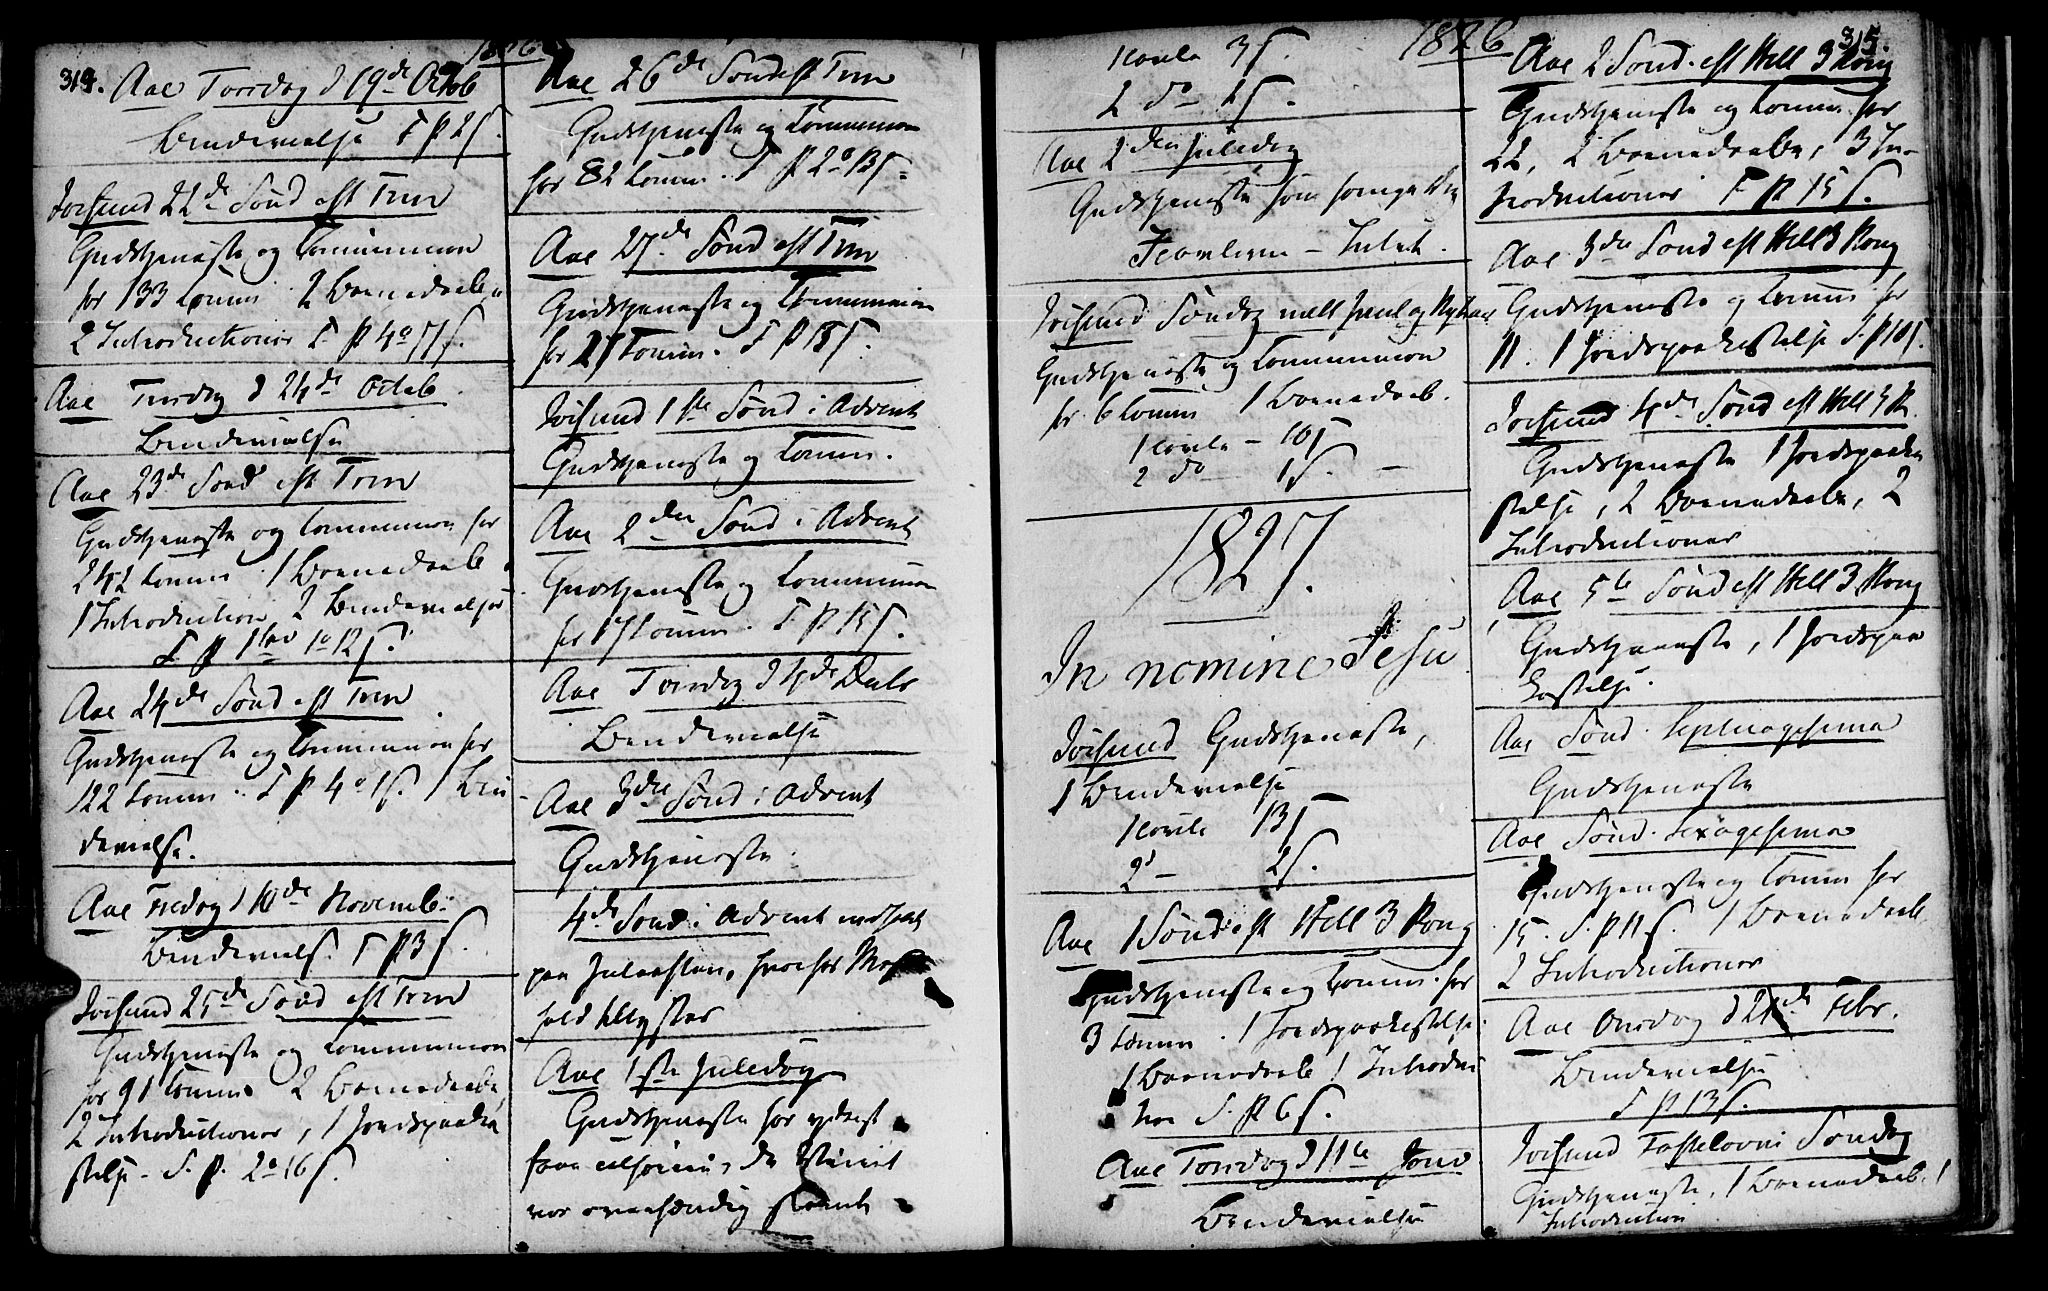 314.
1826
Aae Torsdag d 19de Octob
Brudevielse T p 2 s.
Jøssund 22de Sønd eft Trin
Gudstjeneste og Communion
for 133 Comm. 2 Barnedaab,
2 Introductioner T p 4 o 7 s.
Aae Tirsdag d 24de Octob.
Brudevielse
Aae 23de Sønd eft Trin
Gudstjeneste og Communion for
242 Comm. 1 Barnedaab
1 Introduction 2 Brudevielser
T p 1 1 o 12 s.
Aae 24de Sønd eft Trin
Gudstjeneste og Communion for
122 Comm. T p 4 o 1 s. 1 Bru
devielse.
Aae Fredag d 10de Novemb:
Brudeviels. T p 3 s.
Jøssund 25de Sønd eft Trin
Gudstjeneste og Communion
for 91 Comm 2 Barnedaab,
2 Introductioner, 1 Jordspaaka
stelse. T. p. 2 o 16 s.
Aae 26de Sønd eft Trin
Gudstjeneste og Communion
for 82 Comm. T p 2 o 13 s.
Aae 27de Sønd eft Trin
Gudstjeneste og Communion
for 27 Comm. T p 18 s.
Jøssund 1ste Sønd i Advent
Gudstjeneste og Comm.
Aae 2den Sønd i Advent
Gudstjeneste og Communion
for 17 Comm. T p 15 s.
Aae Torsdag d 7de Decbr
Brudevielse
Aae 3die Sønd i Advent
Gudstjeneste.
4de Sønd i Advent indfalt
paa Juleaften, hvorfor
hold
Aae 1ste Juledag
Gudstjeneste for yderst
faae
var stærk
1826
1 Tavle 3 s.
2 do 2 s.
Aae 2den Juledag
Gudstjeneste som forrige
Tavlerne - Intet.
Jøssund Søndag mell Juul og Nytaar
Gudstjeneste og Communion
for 6 Comm 1 Barnedaab.
1 Tavle - 10 s
2 do 1 s. -
1827.
In nomine Jesu
Jøssund Gudstjeneste,
1 Brudevielse
1 Tavle 13 s
2d - 2 s.
Aae 1 Sønd eft Hell 3 Kong
Gudstjeneste og Comm. for
3 Comm. 1 Jordspaakastelse
1 Barnedaab 1 Introduc
tion T. p 6 s.
Aae Torsdag d 11te Janv
Brudevielse
315.
Aae 2 Sønd. eft Hell 3 Kong
Gudstjeneste og Comm. for
22, 2 Barnedaabe, 3 In-
troductioner T p 15 s.
Aae 3die Sønd eft Hell 3 Kong
Gudstjeneste og Comm for
11. 1 Jordspaakastelse T. p 10 s.
Jøssund 4de Sønd eft Hell 3 K.
Gudstjeneste 1 Jordspaaka
stelse, 2 Barnedaabe, 2
Introductioner
Aae 5te Sønd eft Hell 3 Kong
Gudstjeneste, 1 Jordspaa
kastelse.
Aae Sønd. Septuagesima
Gudstjeneste
Aae Sønd. Sexagesima
Gudstjeneste og Comm for
15. T. p 11 s. 1 Barnedaab
2 Introductioner
Aae Onsdag d 21de Febr.
Brudevielse
T p 13 s.
Jøssund Fastelavns Søndag
Gudstjeneste, 1 Barnedaab, 1
Introduction